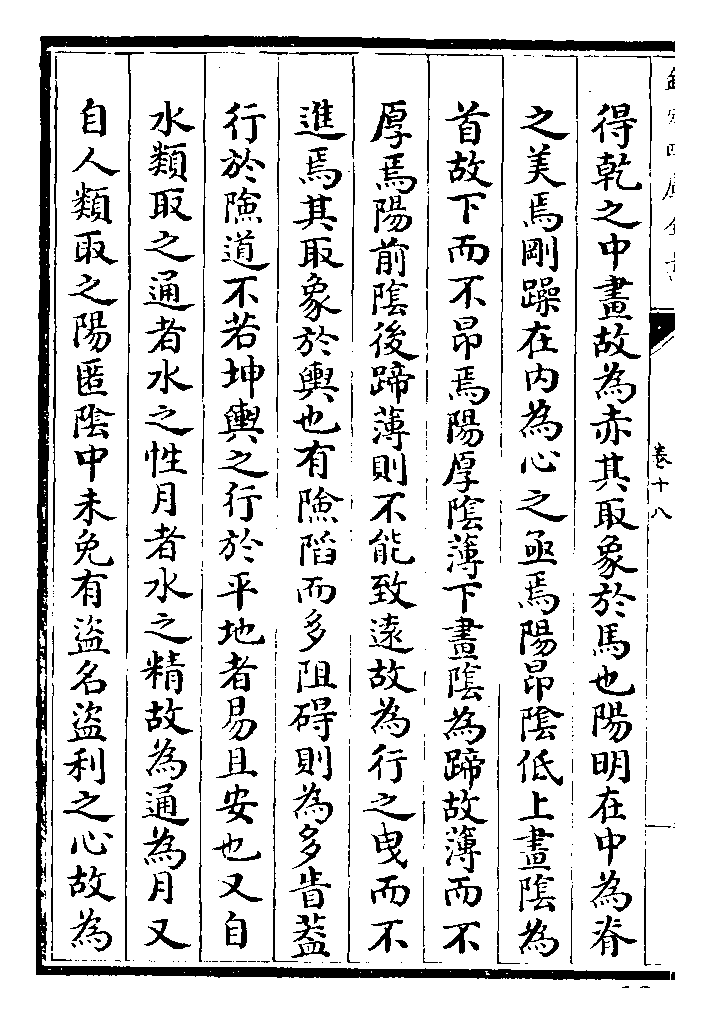 欽定四庫全書
卷十八
得乾之中畫故為赤其取象於馬也陽明在中為脊
之美焉剛躁在内為心之亟焉陽昂陰低上畫陰為
首故下而不昂焉陽厚陰薄下畫陰為蹄故薄而不
厚焉陽前陰後蹄薄則不能致逺故為行之曵而不
進焉其取象於輿也有險䧟而多阻碍則為多眚葢
行於險道不若坤輿之行於平地者易且安也又自
水類取之通者水之性月者水之精故為通為月又
自人類取之陽匿陰中未免有盗名盗利之心故為